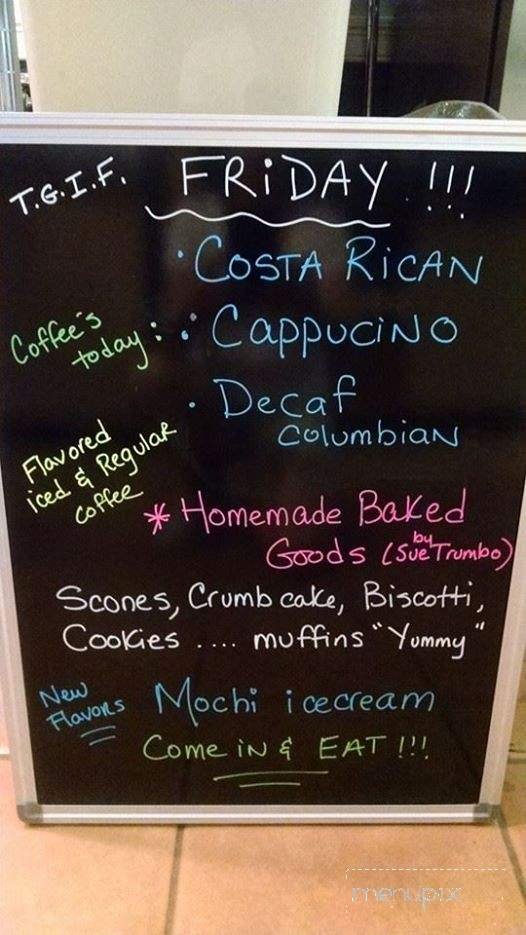 T.G.I.F. FRiDAY !!!
• COSTA RiCAN
Coffee's today : • CAPPUCiNO
• Decaf
COLUMBiAN
Flavored
iced & Regular
coffee
* Homemade Baked
Goods (by Sue Trumbo)
Scones, Crumb cake, Biscotti,
Cookies .... muffins "Yummy"
New
Flavors
Mochi icecream
Come iN & EAT !!!
menupix